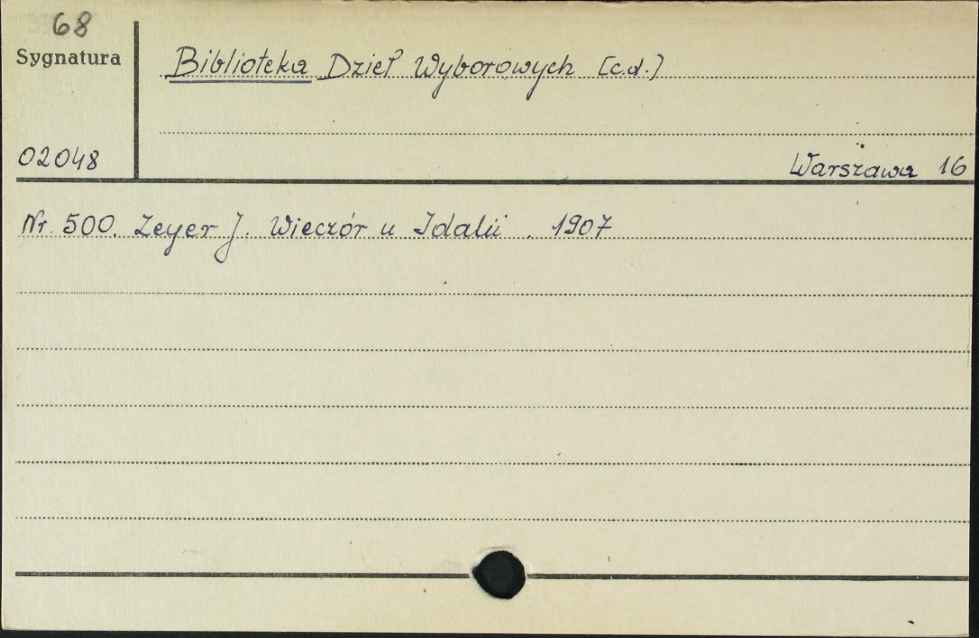 68
Sygnatura
Biblioteka Dzieł Wyborowych [c.d.]
02048
Warszawa 16
Nr. 500. Zeyer J. Wieczór u Idalii. 1907